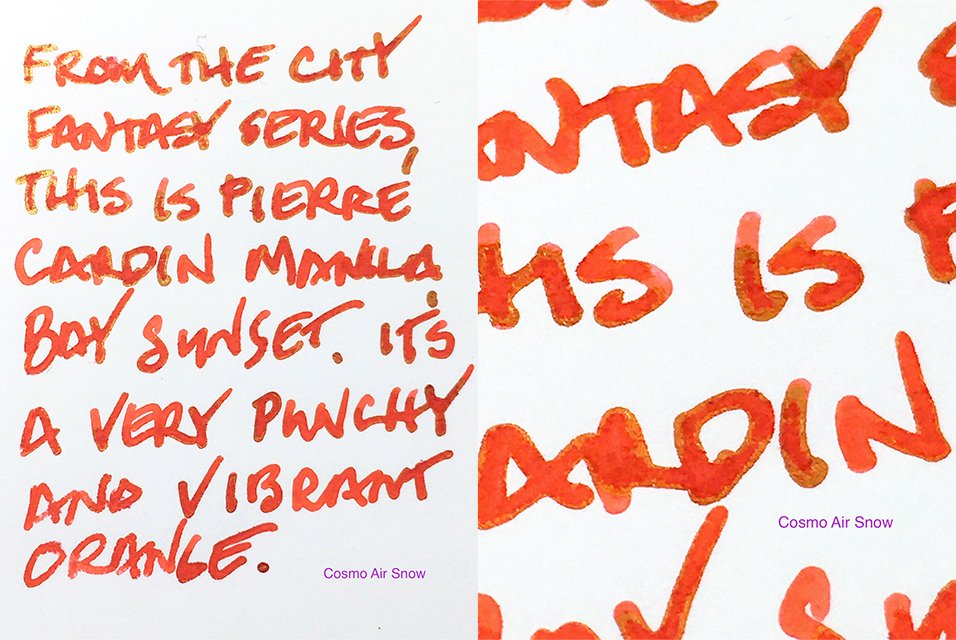 FROM THE CITY
FANTASY SERIES,
THIS IS PIERRE
CARDIN MANILA
BAY SUNSET. IT'S
A VERY PUNCHY
AND VIBRANT
ORANGE.
Cosmo Air Snow
ANTASY
HIS IS
ARDIN
Cosmo Air Snow